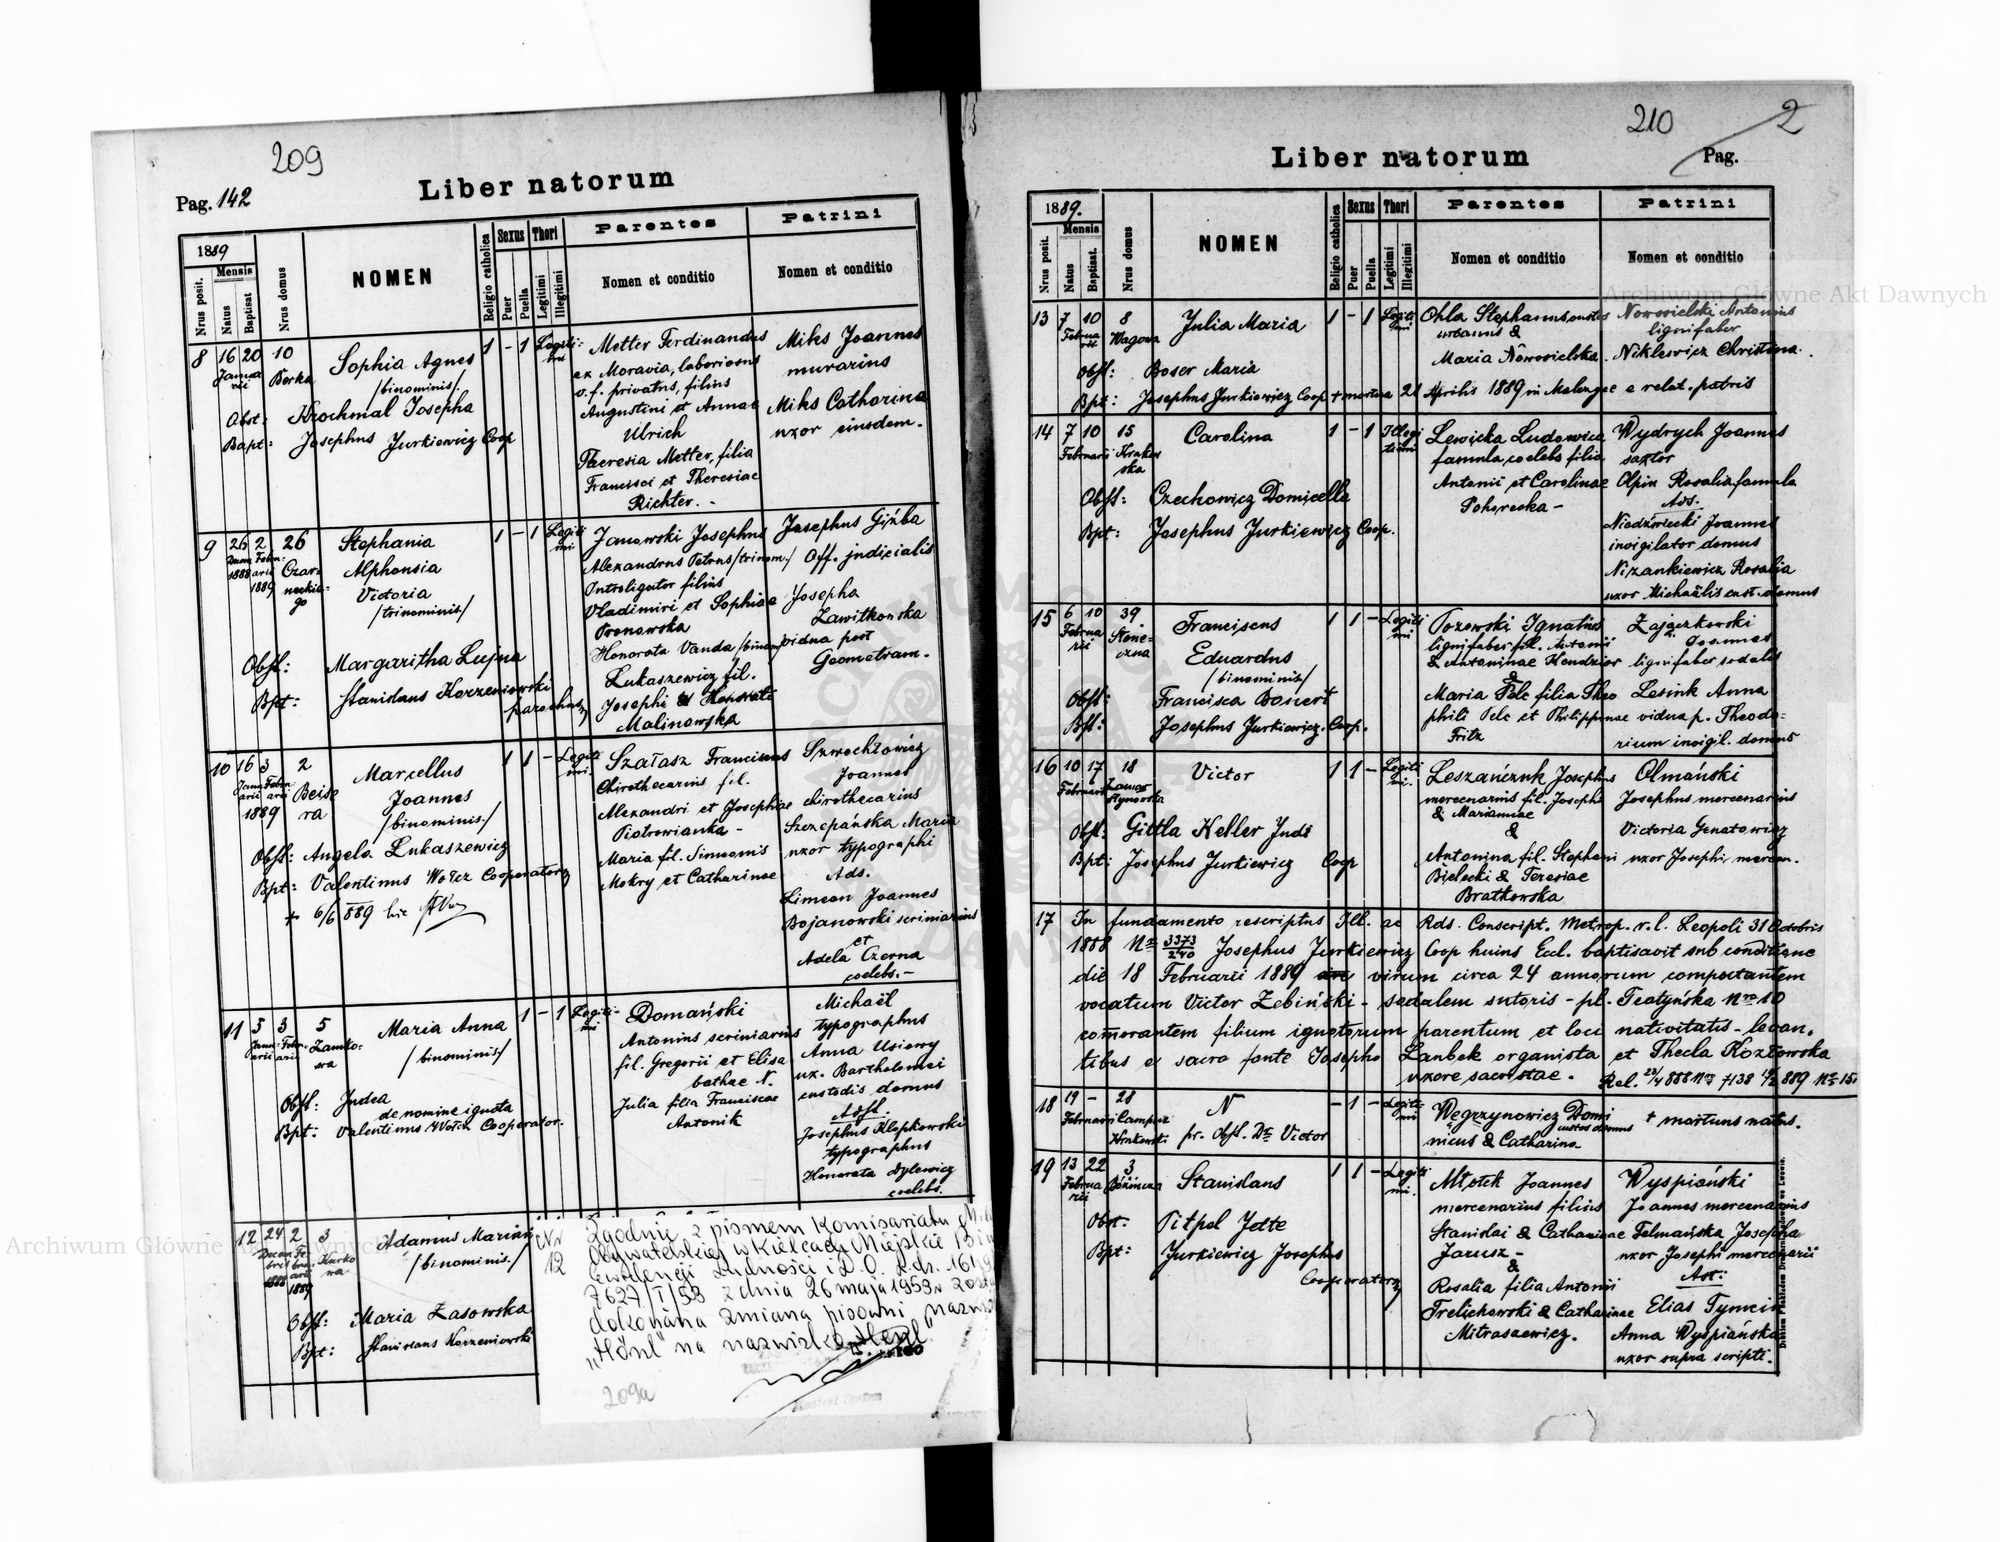 209
Pag. 142
Liber natorum
1889
Nrus posit.
Mensis
Natus
Baptisat
Nrus domus
NOMEN
Religio catholica
Sexus
Puer
Puella
Thori
Legitimi
Illegitimi
Parentes
Nomen et conditio
Patrini
Nomen et conditio
8 16 20 10
Januarii
Borka
Sophia Agnes
/binominis/.
1 - 1 Legitimi
Obst: Krochmal Josepha
Bapt: Josephus Jurkiewicz Coop
Metter Ferdinandus
ex Moravia, laboriosus
o. f. privatus, filius
Augustini et Annae
Ulrich
Theresia Metter, filia
Francisci et Theresiae
Richter. -
Miks Joannes
murarius
Miks Catharina
uxor eiusdem.
9 26 2 26
1888 1889
Stephania
Alphonsia
Victoria
/trinominis/
1 - 1 Legitimi
Obst: Margaritha Lujna
Bpt: Stanislaus Korzeniowski
parochus
Janowski Josephus
Alexandrus Petrus /trinom:/
Introligator filius
Vladimiri et Sophiae
Pronawska
Honorata Vanda /binom/
Łukaszewicz fil.
Josephi et Honorati
Malinowska
Josephus Giżba
Off. judicialis
Josepha
Zawitkowska
vidua post
Geometram.
10 16 3 2
1889
Beisera
Marcellus
Joannes
/binominis/
1 1 - Legitimi.
Obst: Angela Łukaszewicz
Bpt: Valentinus Wołcz Cooperator
+ 6/6 889 hic
Szałasz Franciscus
Chirothecarius fil.
Alexandri et Josephiae
Piotrowianka -
Maria fil. Simeonis
Mokry et Catharinae
Szwochłowicz
Joannes
chirothecarius
Szczepańska Maria
uxor typographi
Ads.
Simeon Joannes
Bojanowski scriniarius
et
Adela Czerna
coelebs. -
11 5 3 5
Zamkowa
Maria Anna
/binominis/
1 - 1 Legitimi
Obst: Judea
de nomine ignota
Bpt: Valentinus Wołcz Cooperator.
Domański
Antonius scriniarius
fil. Gregorii et Elisa
bathae N.
Julia filia Franciscae
Antonik
Michaël
typographus
Anna Usiowy
ux. Bartholomei
custodis domus
Asst.
Josephus Klopkowski
typographus
Honorata Dylewicz
coelebs.
12 24 2 3
1888 1889
Kurkowa
Adamus Marian
/binominis./
Obst: Maria Zasowska
Bpt: Stanislaus Korzeniowski
Nr
12
Zgodnie z pismem Komisariatu
Obywatelskiej w Kielcach Miejskie Biu
Ewidencji Ludności i D.O. L.dz. 1619
7627/I/53 z dnia 26 maja 1953r
dokonana zmiana pisowni nazwis
„Hönl" na nazwisko „Henl".
209a
210
2
Liber natorum
Pag.
1889.
Nrus posit.
Mensis
Natus
Baptisat.
Nrus domus
NOMEN
Religio catholica
Sexus
Puer
Puella
Thori
Legitimi
Illegitimi
Parentes
Nomen et conditio
Patrini
Nomen et conditio
13 7 10 8
Februarii Wagowa
Julia Maria
1 - 1 Legitimi
Obst: Boser Maria
Bpt: Josephus Jurkiewicz Coop + mortua 21 Aprilis 1889 in e relat. patris
Ohla Stephanus, custos
urbanus &
Maria Nowosielska.
Nowosielski Antonius
lignifaber
Niklewicz Christina.
14 7 10 15
Februarii Krakowska
Carolina
1 - 1 Illegitimi
Obst: Czechowicz Domicella
Bpt: Josephus Jurkiewicz Coop.
Lewicka Ludowica
famula, coelebs filia
Antonii et Carolinae
Pohorecka -
Wydrych Joannes
sartor
Olpin Rosalia famula
Ass.
Niedźwiecki Joannes
invigilator domus
Nizankiewicz Rosalia
uxor Michaëlis cust. domus
15 6 10 39
Februarii Słoneczna
Franciscus
Eduardus
/binominis/
1 1 - Legitimi
Obst: Francisca Bonert
Bpt: Josephus Jurkiewicz. Coop.
Tozowski Ignatius
lignifaber fil. Antonii
& Antoninae Hendzior
&
Maria Pelc filia Theo
phili Pelc et Philippinae
Fritz
Zajączkowski
Joannes
lignifaber sodalis
Lesink Anna
vidua p. Theodo-
rium invigil. domus
16 10 17 18
Februarii
Victor
1 1 - Legitimi.
Obst: Gittla Keller Judi
Bpt: Josephus Jurkiewicz Coop
Leszańczuk Josephus
mercenarius fil. Josephi
& Marianae
&
Antonina fil. Stephani
Bielecki & Teresiae
Bratkowska
Olmański
Josephus mercenarius
Victoria Genatowicz
uxor Josephi mercen.
17 In fundamento rescriptus Ill. ac Rds. Conscript. Metrop. r. l. Leopoli 31 Octobris
1888 Nro 3373/240 Josephus Jurkiewicz Coop huius Eccl. baptisavit sub conditione
die 18 Februarii 1889 virum circa 24 annorum computantem
vocatum Victor Zebiński - sodalem sutoris - pl. Teatyńska Nro 10
comorantem filium ignotorum parentum et loci nativitatis - levan.
tibus e sacro fonte Josepho Lanbek organista et Thecla Kozłowska
uxore sacristae. - Rel.
18 19 - 28
Februarii
N
pr. obst. Dr. Victor
- 1 - Legitimi
Węgrzynowicz Domi
nicus & Catharina
custos domus
+ mortuus natus.
19 13 22 3
Februarii
Stanislaus
1 1 - Legitimi.
Obst: Pitpel Jette
Bpt: Jurkiewicz Josephus
Cooperator
Młotek Joannes
mercenarius filius
Stanislai & Catharinae
Janusz -
&
Rosalia filia Antonii
Trelichowski & Catharinae
Mitrasaewicz.
Wyspiański
Joannes mercenarius
Felmańska Josepha
uxor Josephi mercenarii
Ast:
Elias Tymcin
Anna Wyspiańska
uxor supra scripti.
Archiwum Główne Akt Dawnych
Archiwum Główne Akt Dawnych